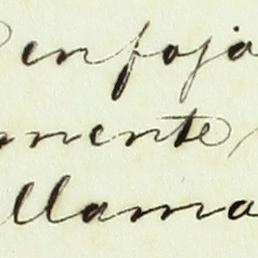 en foja
nente
llama